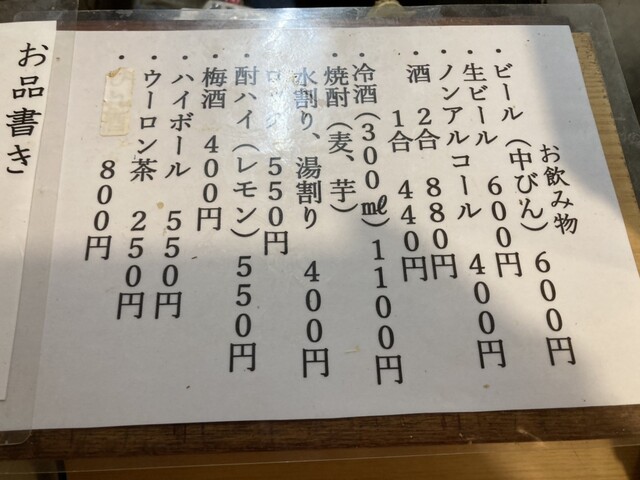 お飲み物
・ビール(中びん)600円
・生ビール 600円
・ノンアルコール 400円
・酒 2合 880円
1合 440円
・冷酒(300㎖)1100円
・焼酎(麦、芋)
水割り、湯割り 400円
ロック 550円
・酎ハイ(レモン)550円
・梅酒 400円
・ハイボール 550円
・ウーロン茶 250円
・ 800円
お品書き